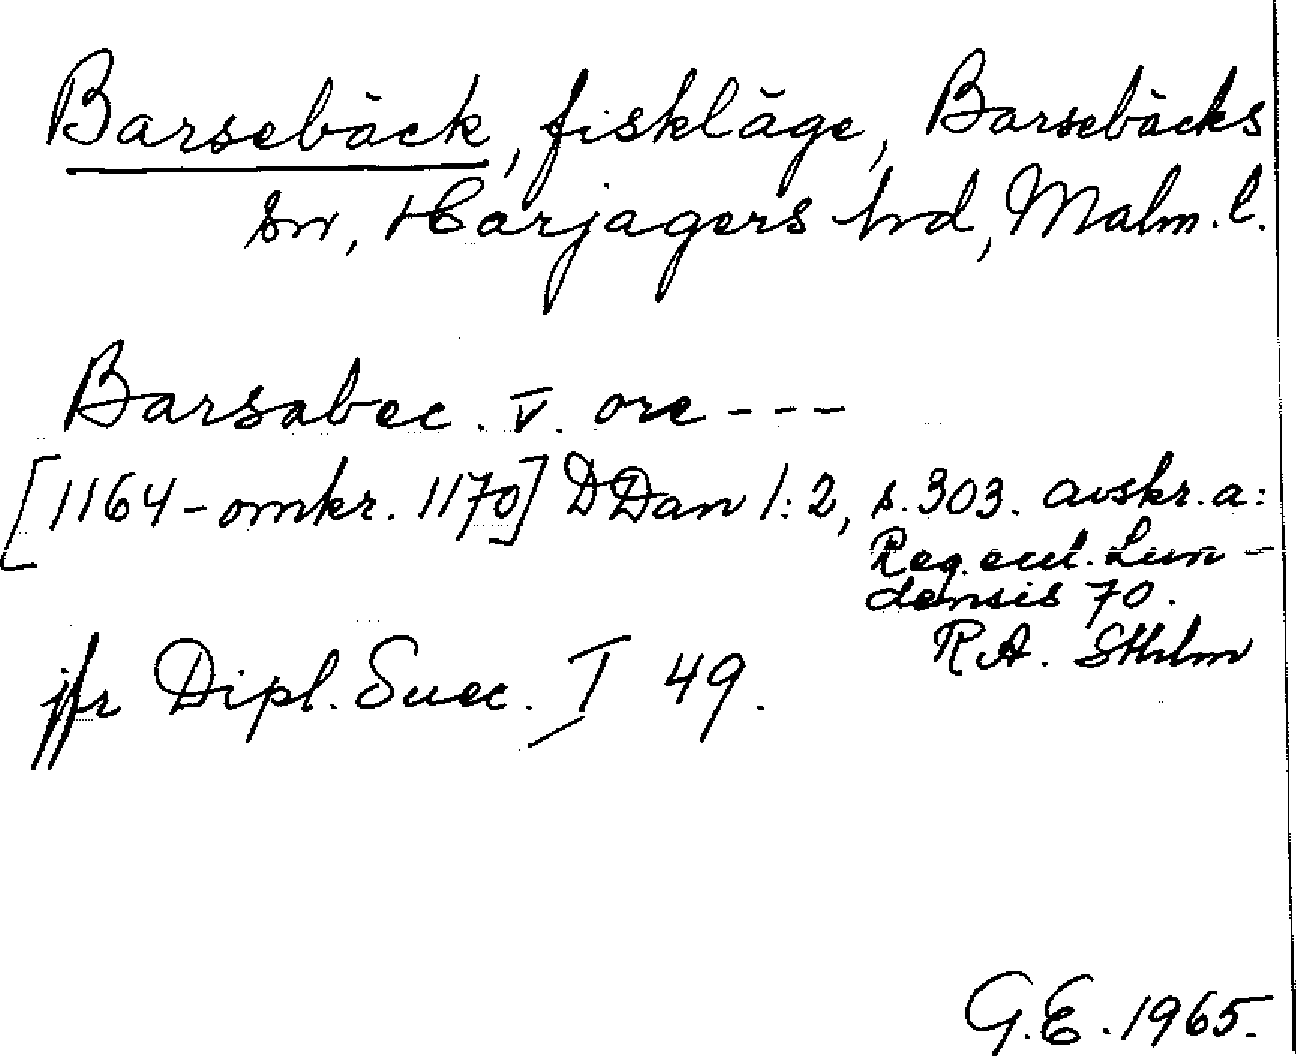 Barsebäck, fiskläge, Barsebäcks
sn, Harjagers hd, Malm. l.
Barsabec. V. ore ---
[1164 - omkr. 1170] DDan 1:2, s. 303. avskr. a:
Reg. eccl. Lun-
densis 70.
R.A. Sthlm
jfr Dipl. Suec. I 49.
G.E. 1965.